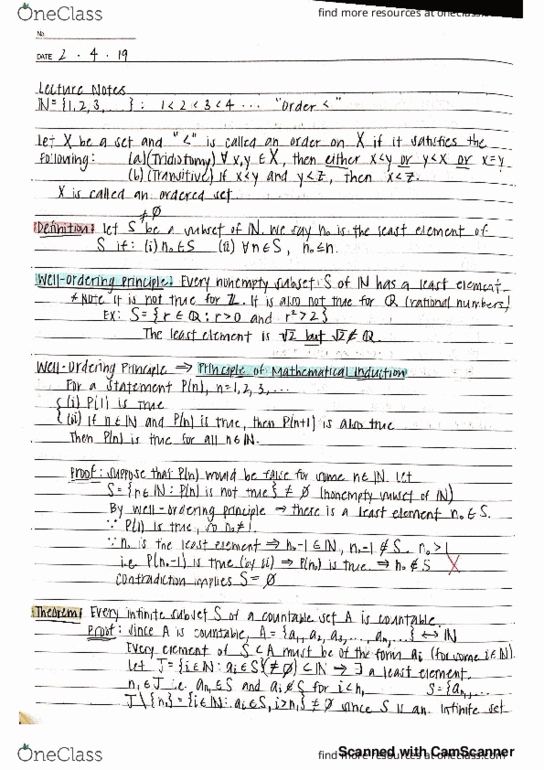 OneClass
find more resources at oneclass.com
No.
DATE 2 . 4 . 19
Lecture Notes
ℕ = {1, 2, 3, } : 1 < 2 < 3 < 4 ... "Order <"
let X be a set and "<" is called an order on X if it satisfies the
following: (a) (Tridistomy) ∀ x,y ∈ X, then either x<y or y<x or x=y
(b) (Transitive) if x<y and y<z, then x<z.
X is called an ordered set.
≠ ∅
Definition: let S be a subset of ℕ. We say n₀ is the least element of
S if: (i) n₀ ∈ S (ii) ∀n∈S, n₀≤n.
Well-ordering principle: Every nonempty subset S of ℕ has a least element.
* Note it is not true for ℤ. It is also not true for ℚ (rational numbers)
EX: S = {r ∈ ℚ : r>0 and r²>2}
The least element is √2 but √2 ∉ ℚ.
Well-Ordering Principle ⇒ Principle of Mathematical Induction
For a statement P(n), n=1,2,3,...
{ (i) P(1) is true
(ii) if n∈ℕ and P(n) is true, then P(n+1) is also true
Then P(n) is true for all n∈ℕ.
Proof: suppose that P(n) would be false for some n∈ℕ. Let
S = {n∈ℕ : P(n) is not true} ≠ ∅ (nonempty subset of ℕ)
By well-ordering principle ⇒ there is a least element n₀∈S.
∵ P(1) is true, so n₀≠1.
∵ n₀ is the least element ⇒ n₀-1∈ℕ, n₀-1∉S. n₀>1
i.e. P(n₀-1) is true (by ii) ⇒ P(n₀) is true ⇒ n₀∉S X
contradiction implies S=∅
Theorem: Every infinite subset S of a countable set A is countable.
Proof: since A is countable, A = {a₁, a₂, a₃, ..., aₙ, ...} ↔ ℕ
Every element of S⊂A must be of the form aᵢ (for some i∈ℕ).
let J = {i∈ℕ : aᵢ∈S} (≠∅) ⊂ℕ ⇒ ∃ a least element.
n₁∈J i.e. aₙ₁∈S and aᵢ∉S for i<n₁ S={aₙ₁, ...
J \ {n₁} = {i∈ℕ : aᵢ∈S, i>n₁} ≠ ∅ since S is an infinite set
OneClass
find more resources at oneclass.com
Scanned with CamScanner